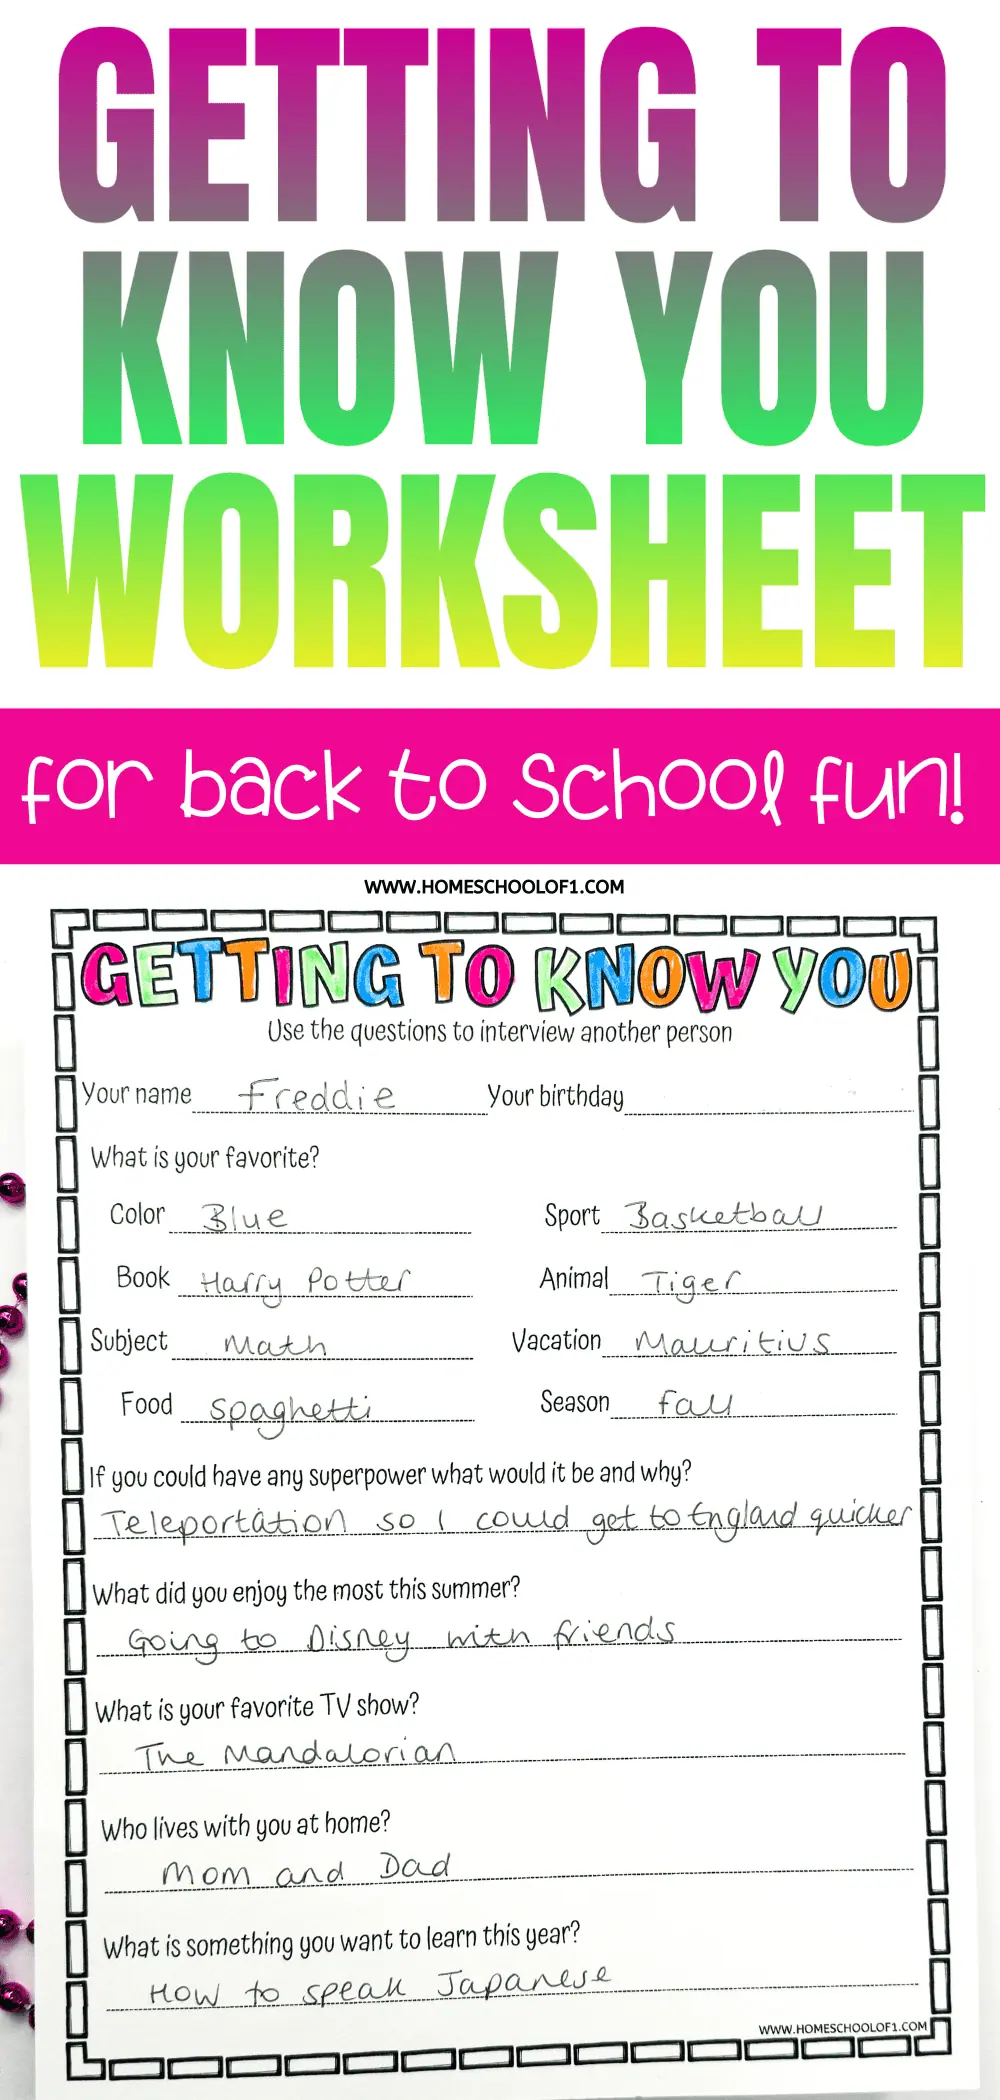 GETTING TO
KNOW YOU
WORKSHEET
for back to school fun!
WWW.HOMESCHOOLOF1.COM
GETTING TO KNOW YOU
Use the questions to interview another person
Your name Freddie Your birthday
What is your favorite?
Color Blue Sport Basketball
Book Harry Potter Animal Tiger
Subject Math Vacation Mauritius
Food spaghetti Season fall
If you could have any superpower what would it be and why?
Teleportation so I could get to England quicker
What did you enjoy the most this summer?
Going to Disney with friends
What is your favorite TV show?
The Mandalorian
Who lives with you at home?
Mom and Dad
What is something you want to learn this year?
How to speak Japanese
WWW.HOMESCHOOLOF1.COM